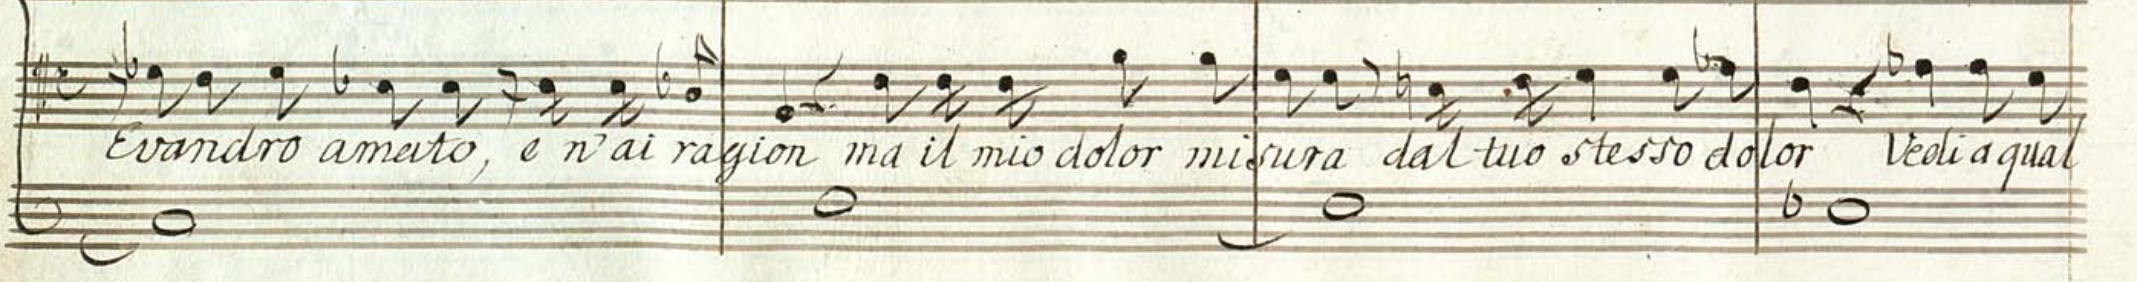 Evandro amato, e n'ai ragion ma il mio dolor misura dal tuo stesso dolor Vedi a qual